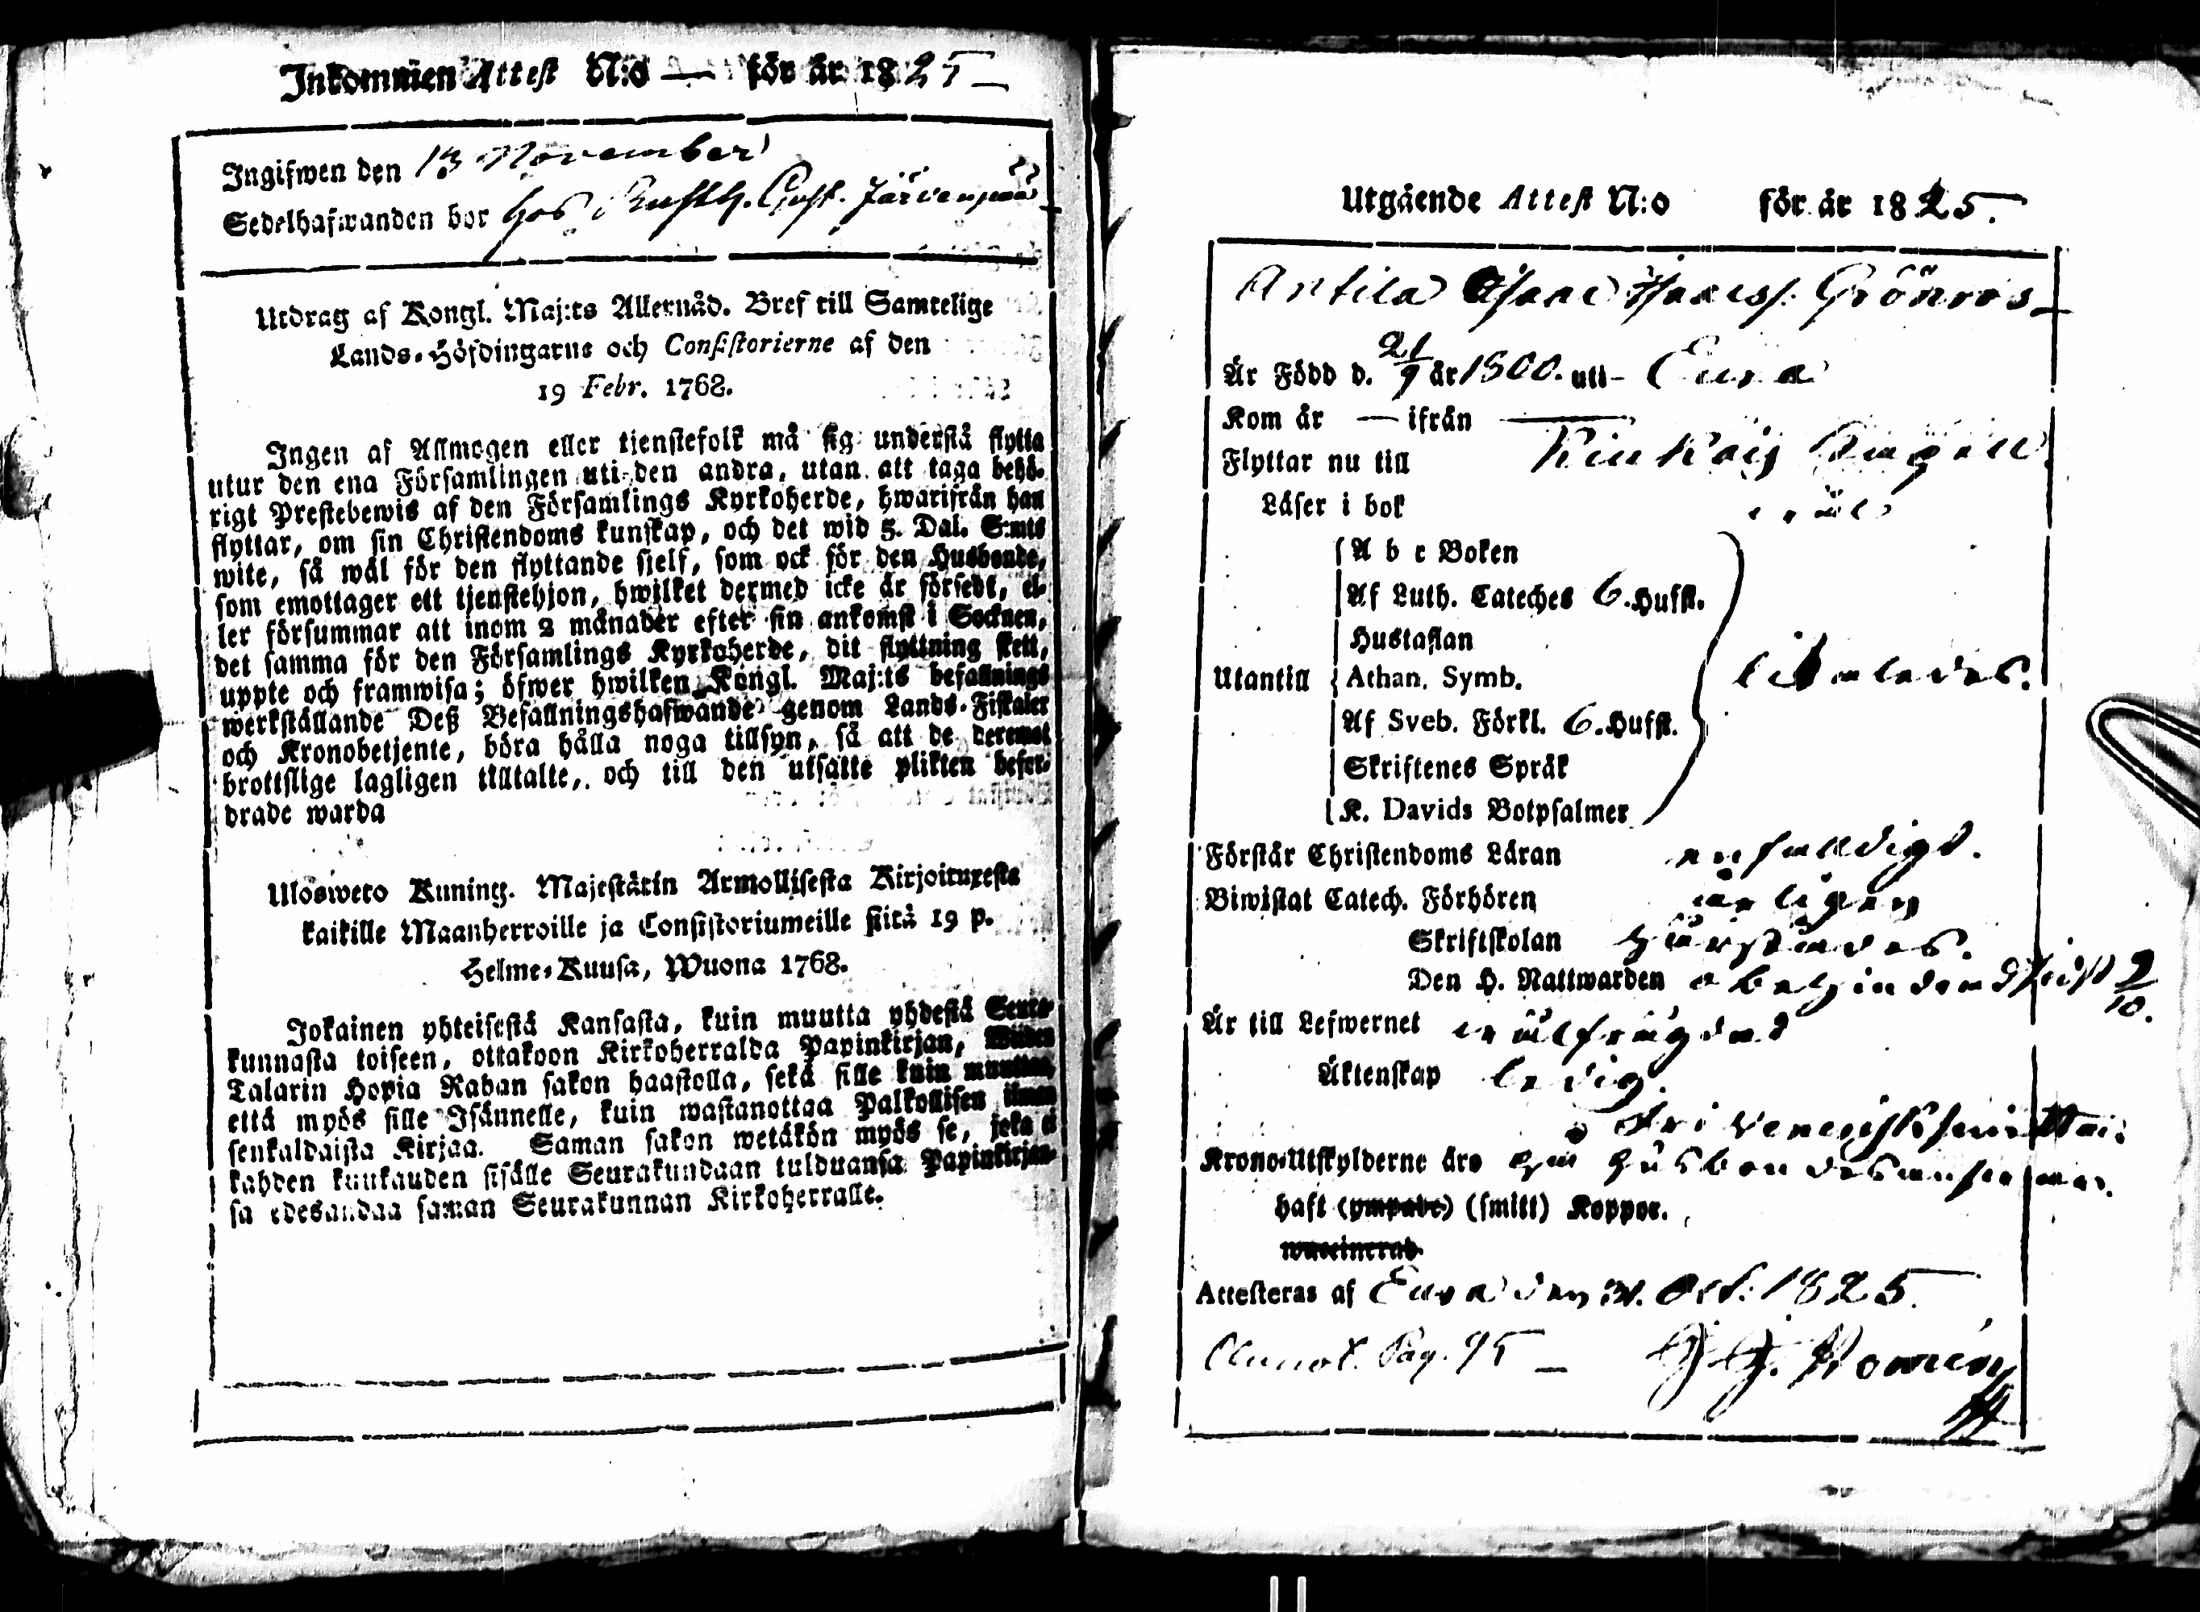 Inkommen Attest N:o — för år 1825
Ingifwen den 13 November
Sedelhafwanden bor hos Rusth. Gust. Järvenpää
Utdrag af Kongl. Maj:ts Allernåd. Bref till Samtelige
Lands-Höfdingarne och Consistorierne af den
19 Febr. 1768.
Ingen af Allmogen eller tjenstefolk må sig understå flytta
utur den ena Församlingen uti den andra, utan att taga behö-
rigt Prestebewis af den Församlings Kyrkoherde, hwarifrån han
flyttar, om sin Christendoms kunskap, och det wid 5. Dal. S:mts
wite, så wäl för den flyttande sjelf, som ock för den Husbonde,
som emottager ett tjenstehjon, hwilket dermed icke är försedt, el-
ler försummar att inom 2 månader efter sin ankomst i Socknen,
det samma för den Församlings Kyrkoherde, dit flyttning skett,
uppte och framwisa; öfwer hwilken Kongl. Maj:ts befallnings
werkställande Deß Befallningshafwande genom Lands-Fiskaler
och Kronobetjente, böra hålla noga tillsyn, så att de deremot
brottslige lagligen tilltalte, och till den utsatte plikten befor-
drade warda
Ulosweto Kuning. Majestätin Armollisesta Kirjoituxesta
kaikille Maanherroille ja Consistoriumeille siitä 19 p.
Helme-Kuusa, Wuona 1768.
Jokainen yhteisestä Kansasta, kuin muutta yhdestä Seura-
kunnasta toiseen, ottakoon Kirkoherralda Papinkirjan, Wiiden
Talarin Hopia Rahan sakon haastolla, sekä sille kuin muuttaa,
että myös sille Isännelle, kuin wastanottaa Palkollisen ilman
senkaldaista Kirjaa. Saman sakon wetäkön myös se, joka ei
kahden kuukauden sisälle Seurakundaan tulduansa Papinkirjan-
sa edesandaa saman Seurakunnan Kirkoherralle.
Utgående Attest N:o för år 1825.
Antila Isaac Isaacss. Grönroos
Är Född d. 21/9 år 1800. uti Eura
Kom år — ifrån —
Flyttar nu till Kiukais Capell
Läser i bok wäl
A b c Boken
Af Luth. Cateches 6. Hufst.
Hustaflan
Utantill Athan. Symb. likaledes.
Af Sveb. Förkl. 6. Hufst.
Skriftenes Språk
K. Davids Botpsalmer
Förstår Christendoms Läran enfaldigt.
Biwistat Catech. Förhören årligen
Skriftskolan härstädes.
Den H. Nattwarden obehindrad sidst 2/10.
Är till Lefwernet wälfrägdad
Äktenskap ledig.
Fri
Krono-Utskylderne äro
haft (ympade) (smitt) Koppor.
waccinerad
Attesteras af Eura den 31. Oct. 1825.
Annot. Pag. 95 —